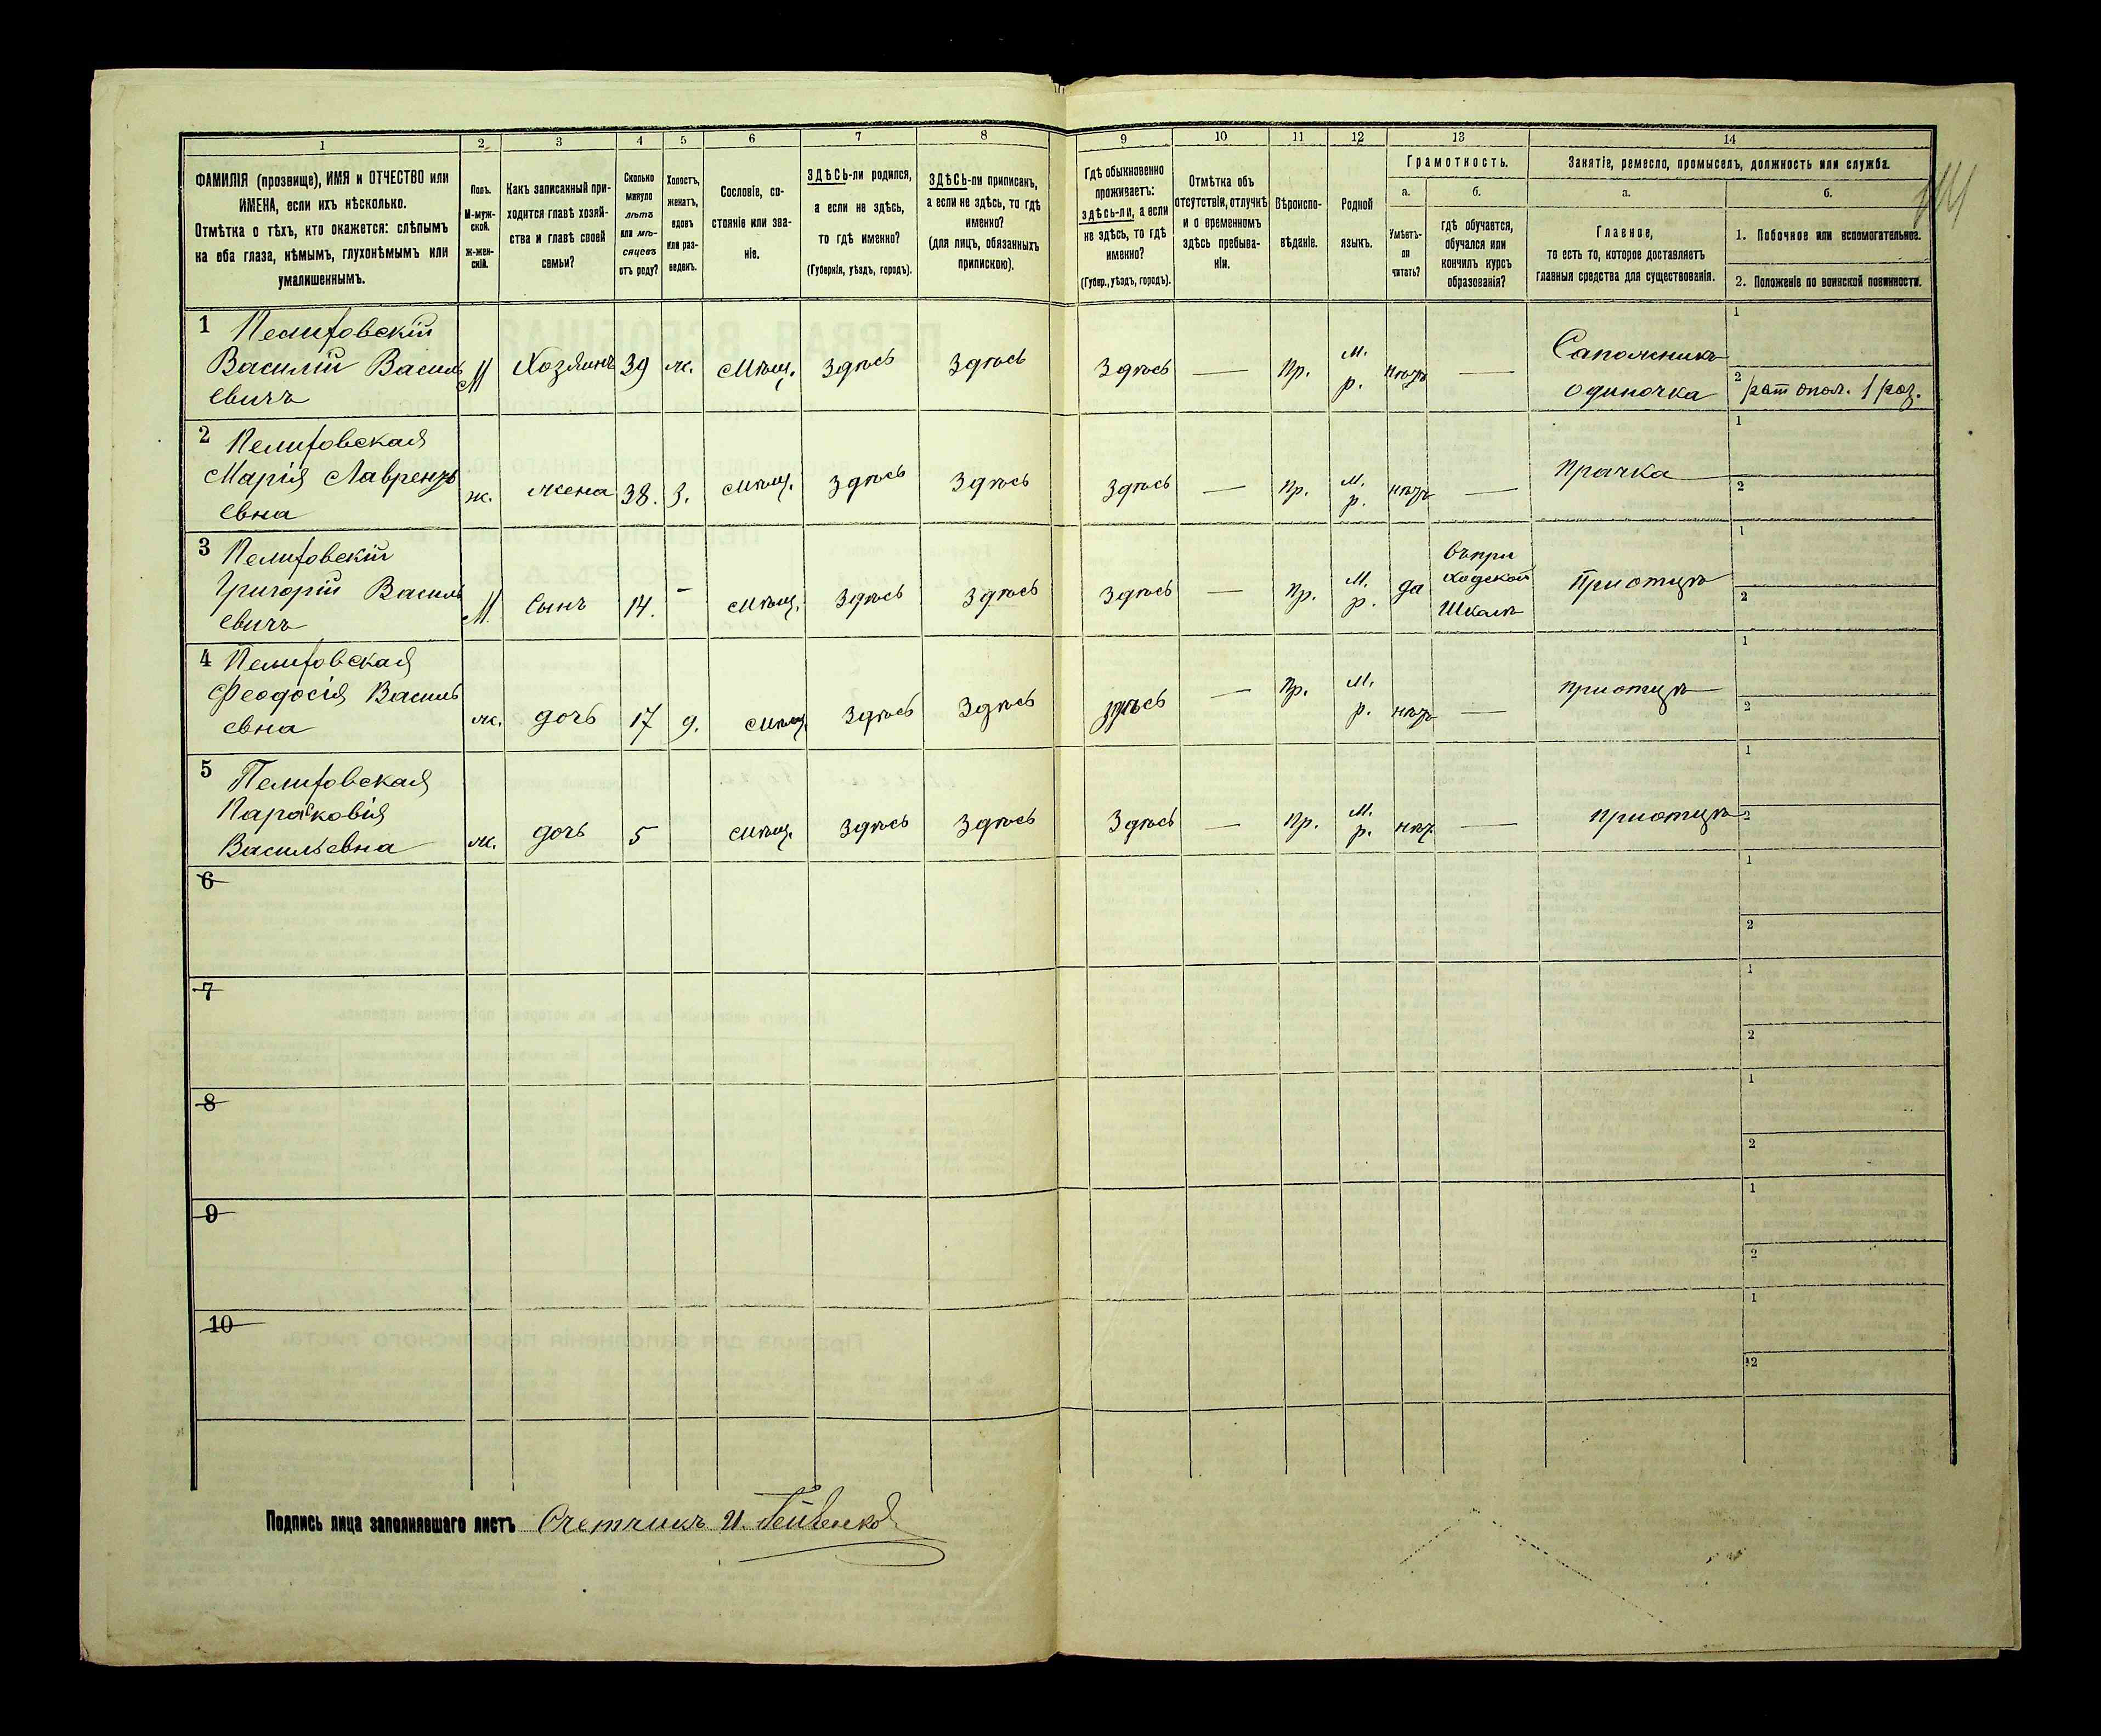 1
2
3
4
5
6
7
8
9
10
11
12
13
14
ФАМИЛІЯ (прозвище), ИМЯ и ОТЧЕСТВО или
ИМЕНА, если ихъ нѣсколько.
Отмѣтка о тѣхъ, кто окажется: слѣпымъ
на оба глаза, нѣмымъ, глухонѣмымъ или
умалишеннымъ.
Полъ.
М-муж-
ской.
ж-жен-
скій.
Какъ записанный при-
ходится главѣ хозяй-
ства и главѣ своей
семьи?
Сколько
минуло
лѣтъ
или мѣ-
сяцевъ
отъ роду?
Холостъ,
женатъ,
вдовъ
или раз-
веденъ.
Сословіе, со-
стояніе или зва-
ніе.
ЗДѢСЬ-ли родился,
а если не здѣсь,
то гдѣ именно?
(Губернія, уѣздъ, городъ).
ЗДѢСЬ-ли приписанъ,
а если не здѣсь, то гдѣ
именно?
(для лицъ, обязанныхъ
припискою).
Гдѣ обыкновенно
проживаетъ:
здѣсь-ли, а если
не здѣсь, то гдѣ
именно?
(Губер., уѣздъ, городъ).
Отмѣтка объ
отсутствіи, отлучкѣ
и о временномъ
здѣсь пребыва-
ніи.
Вѣроиспо-
вѣданіе.
Родной
языкъ.
Грамотность.
а.
Умѣетъ-
ли
читать?
б.
гдѣ обучается,
обучался или
кончилъ курсъ
образованія?
Занятіе, ремесло, промыселъ, должность или служба.
а.
Главное,
то есть то, которое доставляетъ
главныя средства для существованія.
б.
1. Побочное или вспомогательное.
2. Положеніе по воинской повинности.
1
Василій Василь
евичъ
М
Хозяинъ
39
ж.
Мѣщ.
Здѣсь
Здѣсь
Здѣсь
—
Пр.
М.
р.
нѣтъ
—
Сапожникъ
одиночка
1
2 рат опол. 1 раз.
2
Марія Лаврентъ
евна
ж.
жена
38.
З.
Мѣщ.
Здѣсь
Здѣсь
Здѣсь
—
Пр.
М.
р.
нѣтъ
—
Прачка
1
2
3
Григорій Василь
евичъ
М.
Сынъ
14.
-
Мѣщ.
Здѣсь
Здѣсь
Здѣсь
—
Пр.
М.
р.
да
Въ при
ходской
Школѣ
При отцѣ
1
2
4
Феодосія Василь
евна
ж.
дочь
17
д.
Мѣщ.
Здѣсь
Здѣсь
здѣсь
—
Пр.
М.
р.
нѣтъ
—
при отцѣ
1
2
5
Парасковія
Васильевна
ж.
дочь
5
Мѣщ.
Здѣсь
Здѣсь
Здѣсь
—
Пр.
М.
р.
нѣт
—
при отцѣ
1
2
6
1
2
7
1
2
8
1
2
9
1
2
10
1
2
Подпись лица заполнявшаго листъ Счетчикъ И.